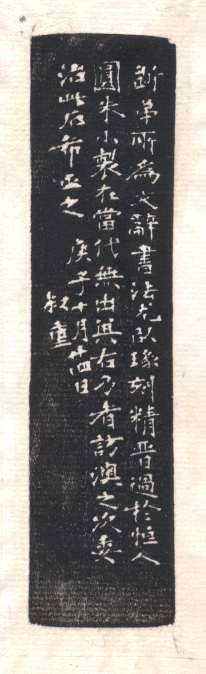 所為文辭書法尤以琢刻精晋過於恒人
圓朱小製在當代無出其右乃者訪澳之次委
治此石希正之
庚子十月廿四日
叔重